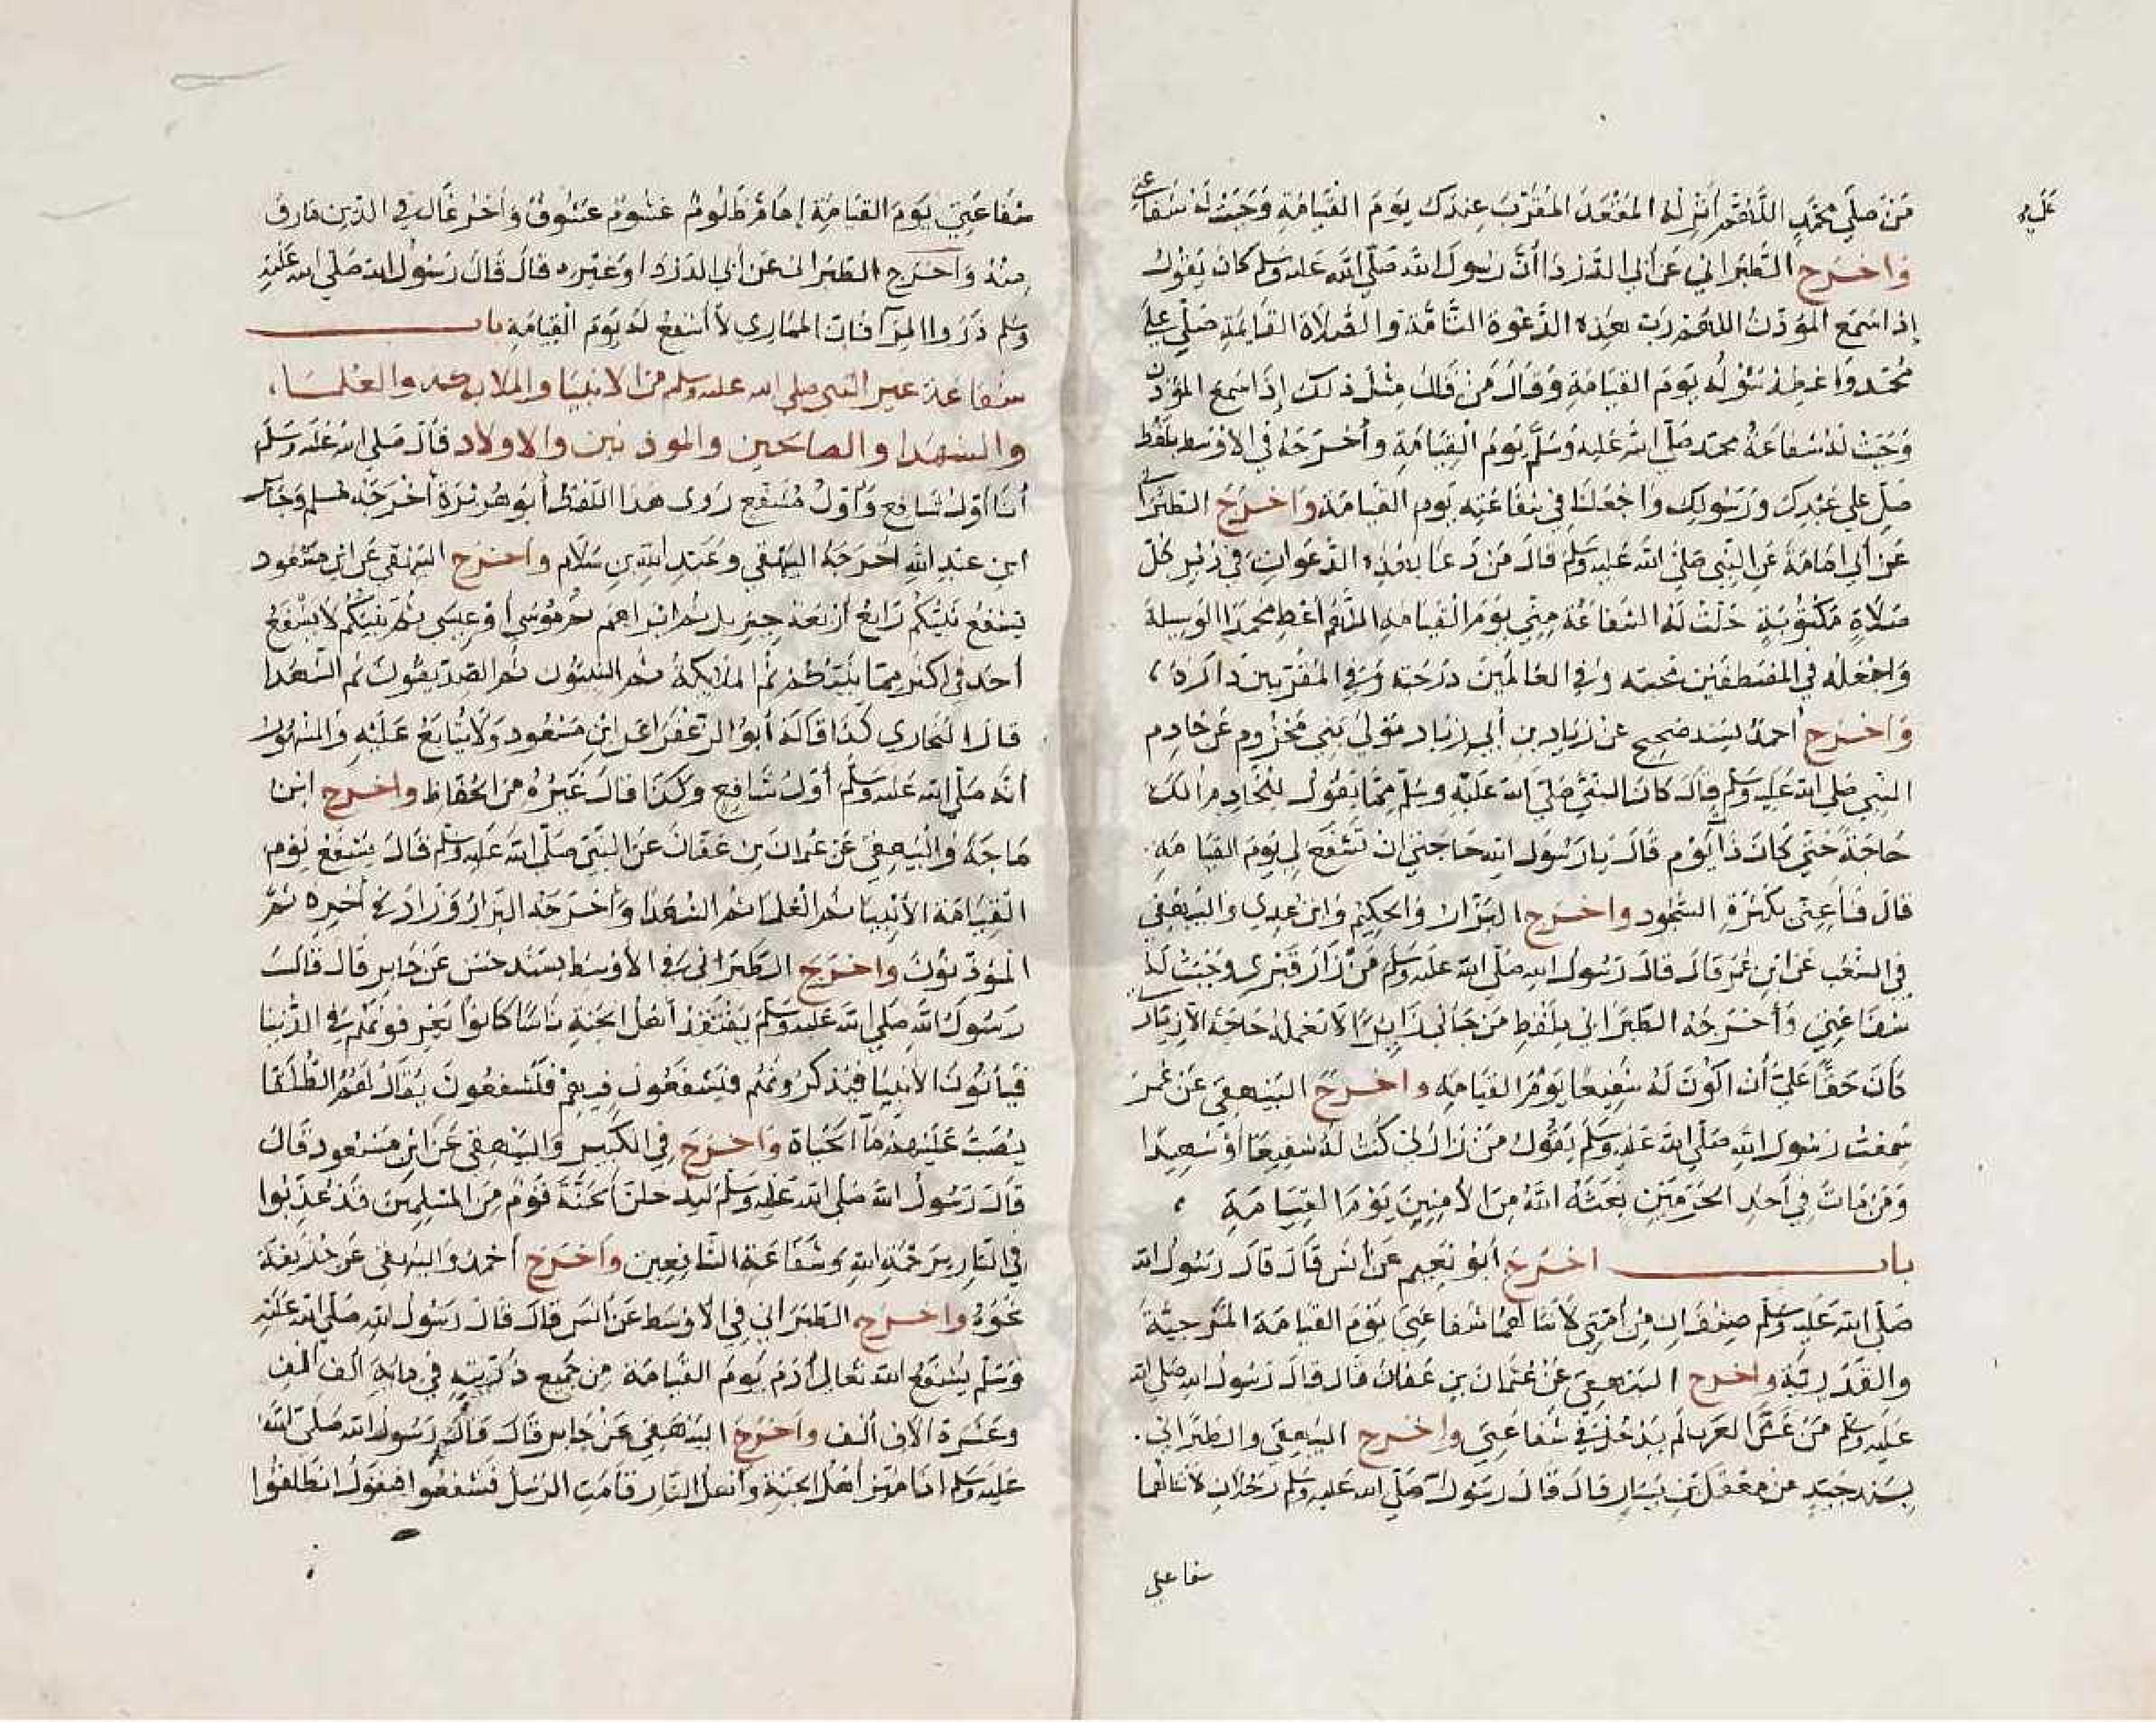 مَنْ صَلَّى محَمَّدٍ اللَّهُمَّ أَنْزِلْهُ المَقْعَدَ المُقَرَّبَ عِنْدَكَ يَوْمَ الْقِيَامَةِ وَجَبَتْ لَهُ شفَاعتي
عَلَى
وَاخرَج الطَّبَرَاني عَن أبي الدَّرْدَا أَنَّ رَسُولَ الله صَلَّى الله عَليه وسَلم كان يَقولُ
إذا سَمِعَ المؤَذِنَ اللَّهُمَّ رَبَّ هَذِه الدَّعْوَة التَّامَّة والصَّلَاة القَايمَةِ صَلِّ عَلَى
مُحَمّد وَاعْطِهِ سُؤْلَهُ يَوْمَ القيَامَةِ وَقَالَ مَنْ قَالَ مِثْلَ ذَلكَ إذَا سَمِعَ المؤذن
وَجَبَتْ لَهُ شفَاعَةُ محمّد صَلَّى الله عَليه وَسَلَّم يَوْمَ الْقِيَامَةِ وأخْرَجَهُ في الأوْسَط بلَفْظ
صَلِّ عَلى عَبْدِكَ وَرَسُولِكَ وَاجْعَلْنَا في شفَاعَتِه يَوم القيَامَة وَاخْرَجَ الطَّبَرَاني
عَن أبي امَامَة عَن النَّبي صَلى الله عَليه وسَلم قَالَ مَنْ دَعَا بهَذِه الدَّعَوَاتِ في دُبُرِ كُلّ
صَلَاةٍ مَكْتُوبَةٍ حَلّتْ لَهُ الشفَاعَةُ مِنِّي يَوْمَ القيَامَة اللَّهُمَّ أَعْطِ محمدًا الوَسيلة
وَاجْعَلْهُ في المُصْطَفَيْنَ محبته وَفي العَالَمينَ دَرَجَته وَفي المُقَرَّبين دَاره ،
وَاخْرَج أحمدُ بسَند صَحِيح عنْ زيَاد بن أبي زيَاد مَوْلَى بَني مَخْزُوم عَن خَادِم
النَّبي صَلى الله عَليه وسَلم قالَ كَانَ النبيّ صَلى الله عَلَيْه وسَلم مِمَّا يَقُولُ للخَادِم ألكَ
حَاجَةٌ حَتى كَانَ ذَا يَوْم قَالَ يَا رَسُولَ الله حَاجَتي انْ تَشْفَعَ لي يَوْمَ القيَامَةِ
قَالَ فَأعِنّي بكَثْرَةِ السُّجُود واخْرَجَ البَزَّارُ وَالحكيم وَابن عَدِي والبَيهَقي
في الشعب عَن ابن عُمَر قَالَ قالَ رَسُولُ الله صَلَّى الله عَليه وسَلم مَنْ زَارَ قَبْرِي وَجَبَتْ لَهُ
شفَاعَتي وَأخرَجَهُ الطَّبَرَاني بلَفْظِ مَنْ جَاني زَايرًا لا تعْمله حَاجَة الا زيَارَتي
كَانَ حَقًّا عَليَّ أنْ اكُونَ لَهُ شَفِيعًا يَوْمَ القيَامَةِ واخرَجَ البَيْهقي عَنْ عُمَر
سَمِعْتُ رَسُولَ الله صَلَّى الله عَليه وسَلم يَقُولُ مَنْ زَارَني كُنْتُ لَهُ شفِيعًا أوْ شهِيدًا
وَمَنْ مَاتَ في أحَدِ الحَرَمَيْنِ بَعَثَهُ اللَّهُ مِنَ الأمِنِينَ يَوْمَ القِيَامَةِ ،
باب اخْرَجَ أبُو نُعَيم عَنْ أنَس قَالَ قَالَ رَسُولُ الله
صَلَّى الله عَليه وسَلّم صِنْفَانِ مِنْ أمّتي لا تنَالهُمَا شفَاعَتي يَوْمَ القيَامَة المُرْجِيَةُ
والقَدَريَّة واخرج البَيهقي عَنْ عُثْمَانَ بن عَفّان قَالَ قالَ رَسُولُ الله صَلى الله
عَليه وسَلم مَنْ غَشَّ العَرَب لَمْ يَدْخُلْ في شفَاعَتي واخْرَج البَيهقي والطبَرَاني .
بسَنَد جَيّدٍ عن مَعْقل بن يَسَارٍ قَالَ قَالَ رَسُولُ الله صَلَّى الله عَليه وسَلم رَجُلَانِ لا تنَالهُمَا
شفاعتي
شفَاعَتي يَوْمَ القيَامَة إمَامٌ ظَلُومٌ غَشُومٌ عَسُوفٌ وَأخَرُ غَالٍ في الدّين مَارق
مِنْهُ وَاخْرَج الطَبَرَاني عَنْ أبي الدَّرْدَا وَغَيْرِه قَالَ قَالَ رَسُولُ الله صَلَّى الله عَلَيْه
وسَلم ذَرُوا المِرَآ فَانَّ المُمَاري لا أشْفَعُ لَهُ يَوْمَ الْقيَامَةِ باب
شفَاعَة غير النَّبي صلى الله عليه وسلم منَ الانبيَا والملايكة والعُلَمَا ،
والشهَدا والصَالحين والموذنين والاولاد قَالَ صَلى الله عَليْه وسَلَّمَ
أنَا أوّلُ شَافِع وَأوّلُ مُشَفَّع رَوى هذا اللفظَ أبُو هُرَيْرَةَ أخرَجَهُ مسلم وَجَابر
ابن عَبدِ الله اخرَجَهُ البَيْهَقي وعَبْدِ الله بن سَلَام واخرَج البَيْهقي عَن ابن مسْعُود
يَشفَعُ نَبيُّكُم رَابعَ أرْبَعَة جِبْريل ثُمّ ابْرَاهيم ثم مُوسَى أوْ عِيسَى ثم نَبيّكم لا يَشْفَعُ
أحَد في اكثَر ممّا يشفع ثم الملايكةُ ثم النبيُّون ثم الصّدّيقُونَ ثم الشّهَدا
قالَ البُخاري كَذَا قَالَهُ أبو الزّعْرَا عن ابن مَسْعُود وَلا يُتَابَعُ عَلَيْهِ والمشهُور
أنّه صَلّى الله عَليه وسَلَّم أوّلُ شَافِع وكَذَا قَالَ غَيْرُهُ مِنَ الحُفّاظِ واخرَج ابن
مَاجَهْ والبَيهَقي عَن عُثْمانَ بن عَفّان عَن النَّبيّ صَلَّى الله عَليه وسَلّم قَالَ يَشفَعُ يَوْمَ
القيَامَة الأنْبِيَا ثم العُلَمَا ثم الشهَدَا وَأخْرَجَهُ البَزّارُ وَزَادَ في أخِرِه ثُمّ
المُؤَذّنُونَ واخرَجَ الطَبَرَاني في الأوْسَط بسَنَد حَسَن عَنْ جَابر قَالَ قَالَ
رَسُولُ الله صَلى الله عَليه وسَلَّم يَفْتَقِدُ أهْلُ الجَنَّةِ نَاسًا كَانُوا يَعْرِفُونَهُم في الدُّنيَا
فَيَأتُونَ الأنْبيَا فيَذكُرُونَهُم فيَشفَعُونَ فيهِم فَيُشَفَّعُونَ يُقَالُ لَهُمُ الطُّلَقَا
يُصَبّ عَلَيْهم مَا الحَيَاة وَاخرَجَ في الكَبير والبَيْهقي عَن ابن مَسْعُود قَالَ
قَالَ رَسُولُ الله صَلى الله عَليه وسَلّم لَيَدْخُلَنَّ الجنَّةَ قَوْمٌ مِنَ المُسْلِمِينَ قَدْ عُذِّبُوا
في النَّار بِرَحْمَةِ الله وَشَفَاعَة الشَّافِعِين واخْرَجَ أحْمدُ والبَيْهَقي عَن حُذَيفَة
نَحْوَهُ واخْرَج الطَبَرَاني في الاوْسَط عَن أنس قالَ قَالَ رَسُولُ الله صَلَّى الله عَلَيْه
وَسَلّم يُشَفّعُ الله تَعَالى أدَم يَوْمَ القيَامَة مِنْ جَميع ذُرّيَّتِهِ في مايَة ألف ألف
وعَشَرة الاف ألف واخرَجَ البَيْهقي عَنْ جَابر قَالَ قَالَ رَسُولُ الله صَلَّى الله
عَليْه وسَلم اذا ميّزَ أهْلُ الجَنَةِ وأهْلُ النَّار قَامَت الرُّسُلُ فَشَفَعُوا فيَقُولُ انطَلِقُوا